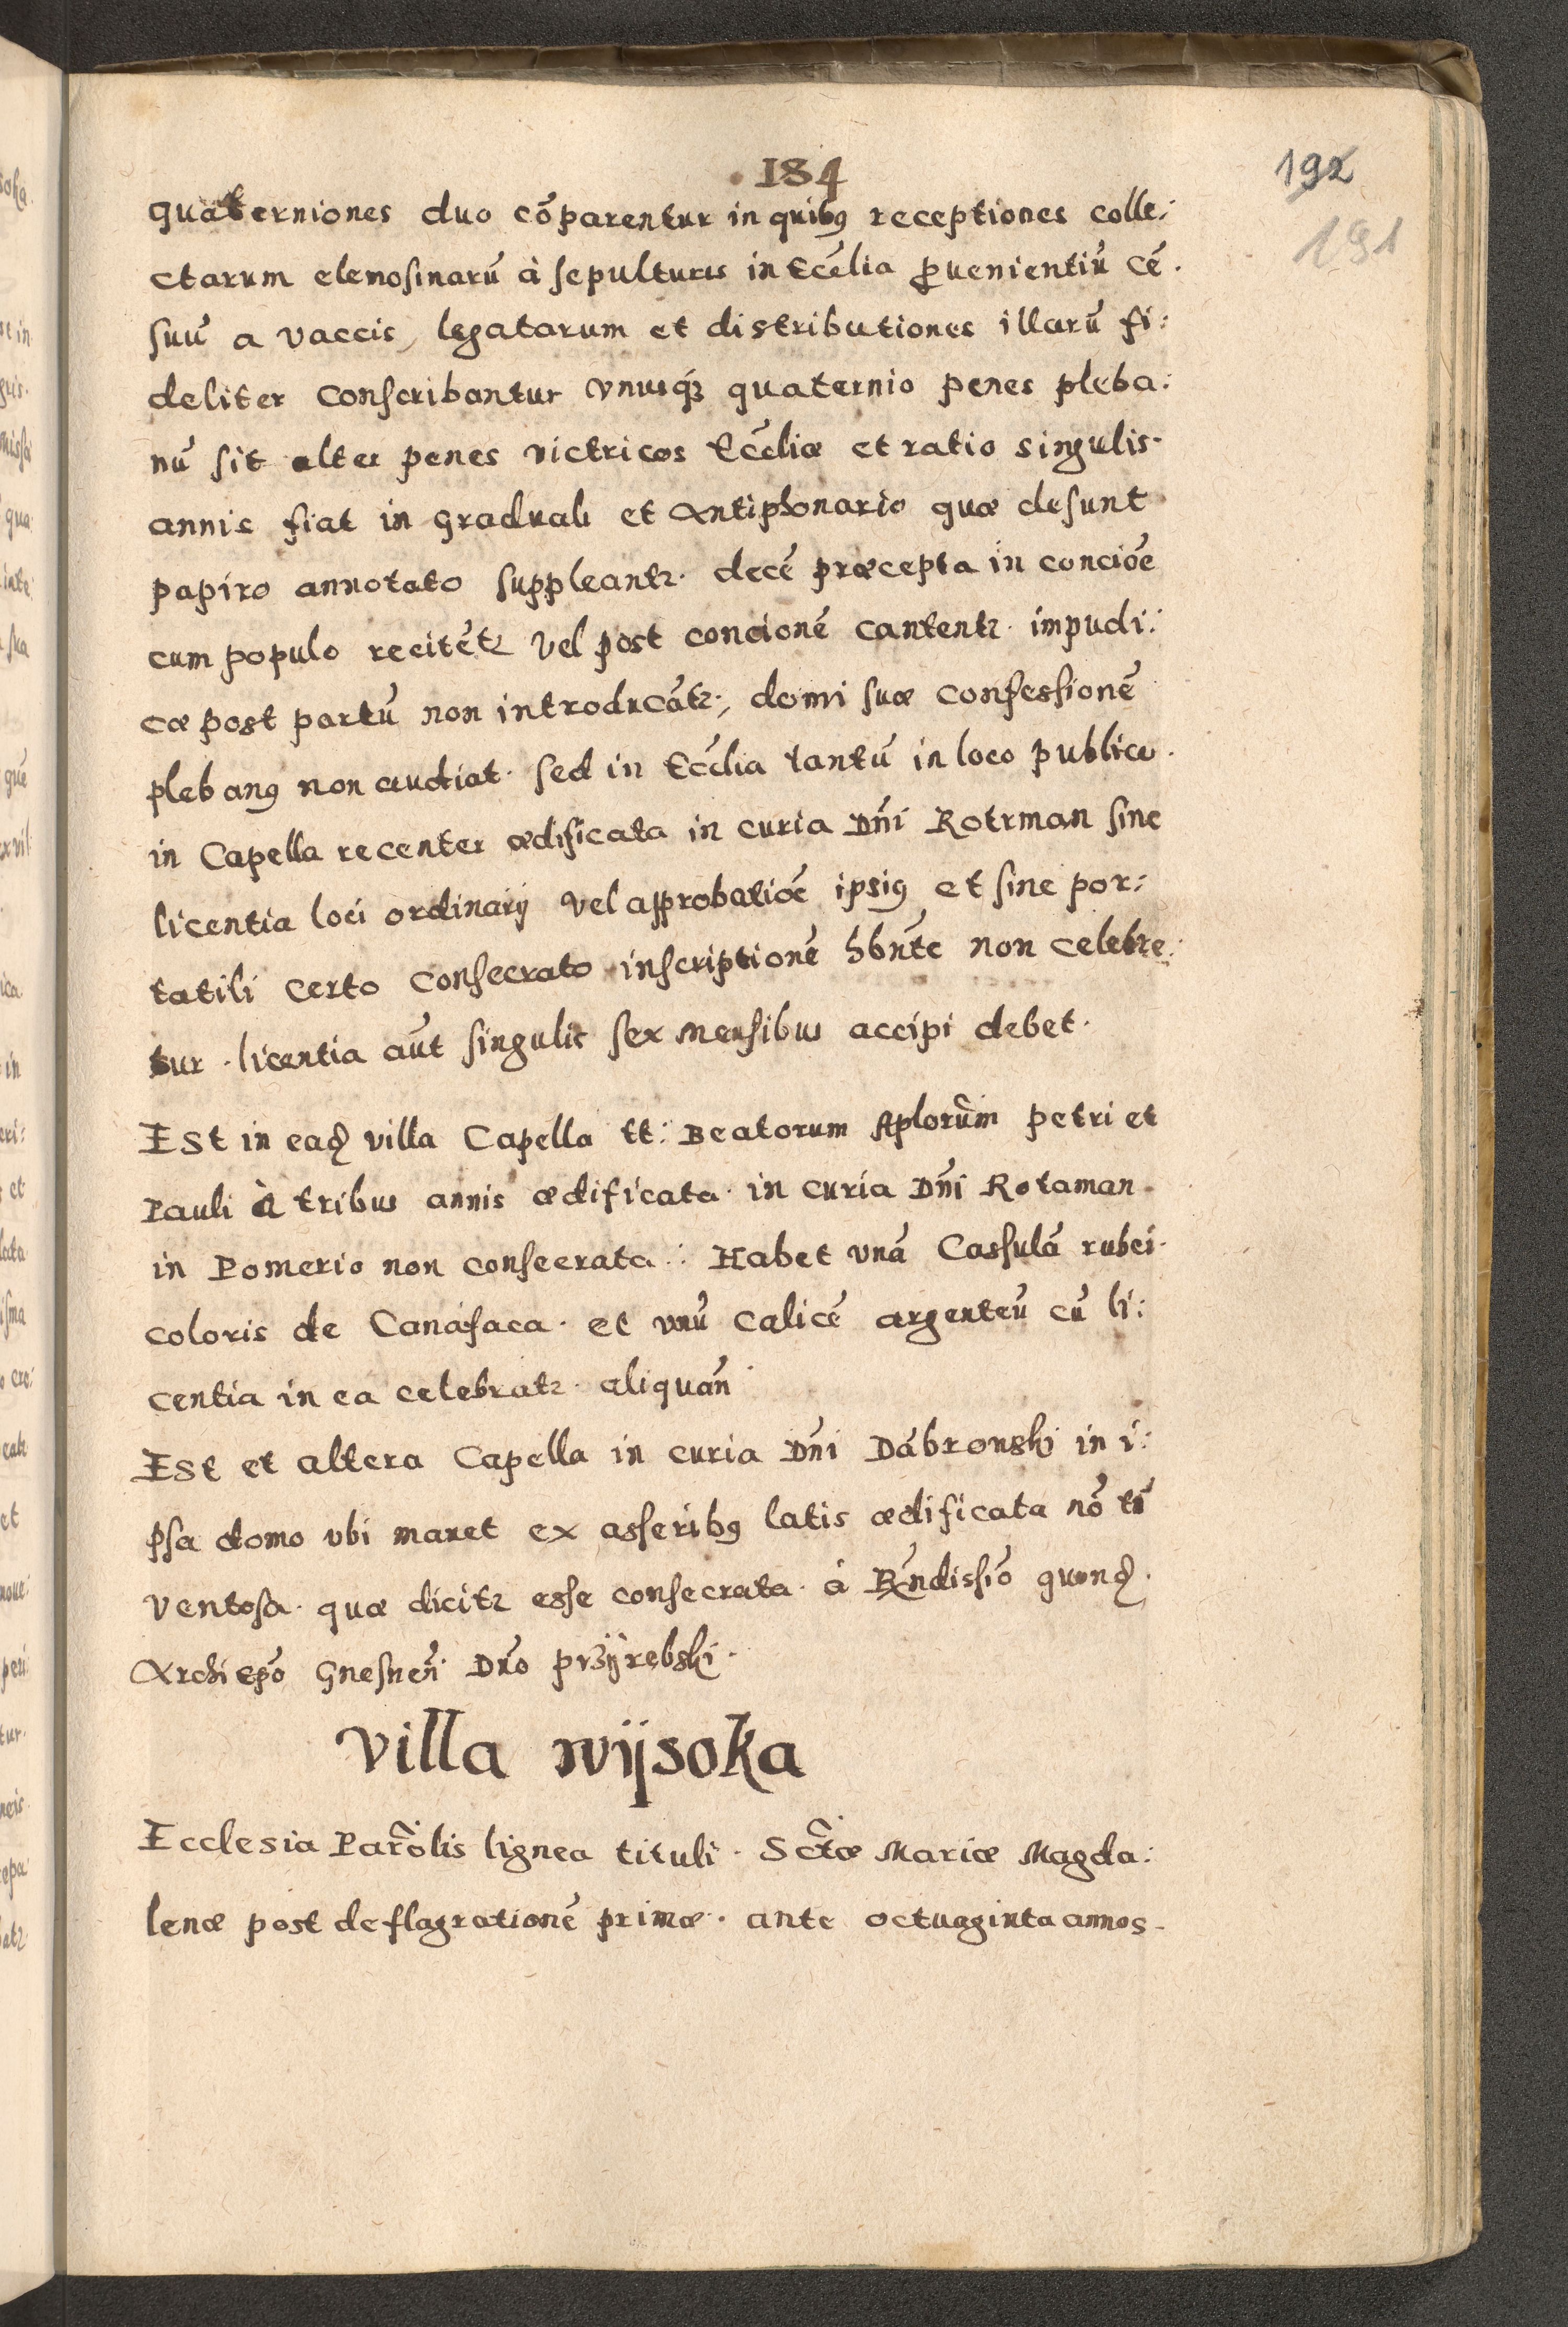 184
192
191
quaterniones duo cōparentur in quibꝰ receptiones colle:
ctarum elemosinarū à sepulturis in Eccēlia ꝓuenientiū cē.
suū a vaccis, legatarum et distributiones illarū fi:
deliter conscribantur vnusq́ꝫ quaternio penes pleba:
nū sit alter penes victricos Eccēliæ et ratio singulis.
annis fiat in graduali et Antiphonario quæ desunt
papiro annotato suppleantꝛ. decē præcepta in conciōe
cum populo recitētꝛ vel post concionē cantentꝛ. impudi:
cæ post partū non introducātꝛ., domi suæ confessionē
plebanꝰ non audiat. sed in Eccēlia tantū in loco publico.
in Capella recenter ædificata in curia Dn̄i Rotrman sine
licentia loci ordinarij vel approbatiōe ipsiꝰ et sine por:
tatili certo consecrato inscriptionē hbn̄te non celebre:
tur. licentia aūt singulis sex mensibus accipi debet.
Est in eaḑ villa Capella tt: Beatorum Aplorūm petri et
Pauli à tribus annis ædificata. in curia Dn̄i Rotaman.
in Pomerio non consecrata.: Habet vnā Cassulā rubei.
coloris de Canáfaca. et vnū calicē argenteū cū li:
centia in ea celebratꝛ. aliquan̄
Est et altera Capella in curia Dn̄i Dábronski in i:
psa domo vbi manet ex asseribꝰ latis ædificata nō tī
ventosa. quæ dicitꝛ esse consecrata. à Rn̄dissīo quonḑ.
Archiep̄o Gnesnen̄ Dn̄o przÿrębski.
Villa wÿsoka
Ecclesia Parōlis lignea tituli. Sctæ Mariæ Magda:
lenæ post deflagrationē primæ. ante octuaginta annos.